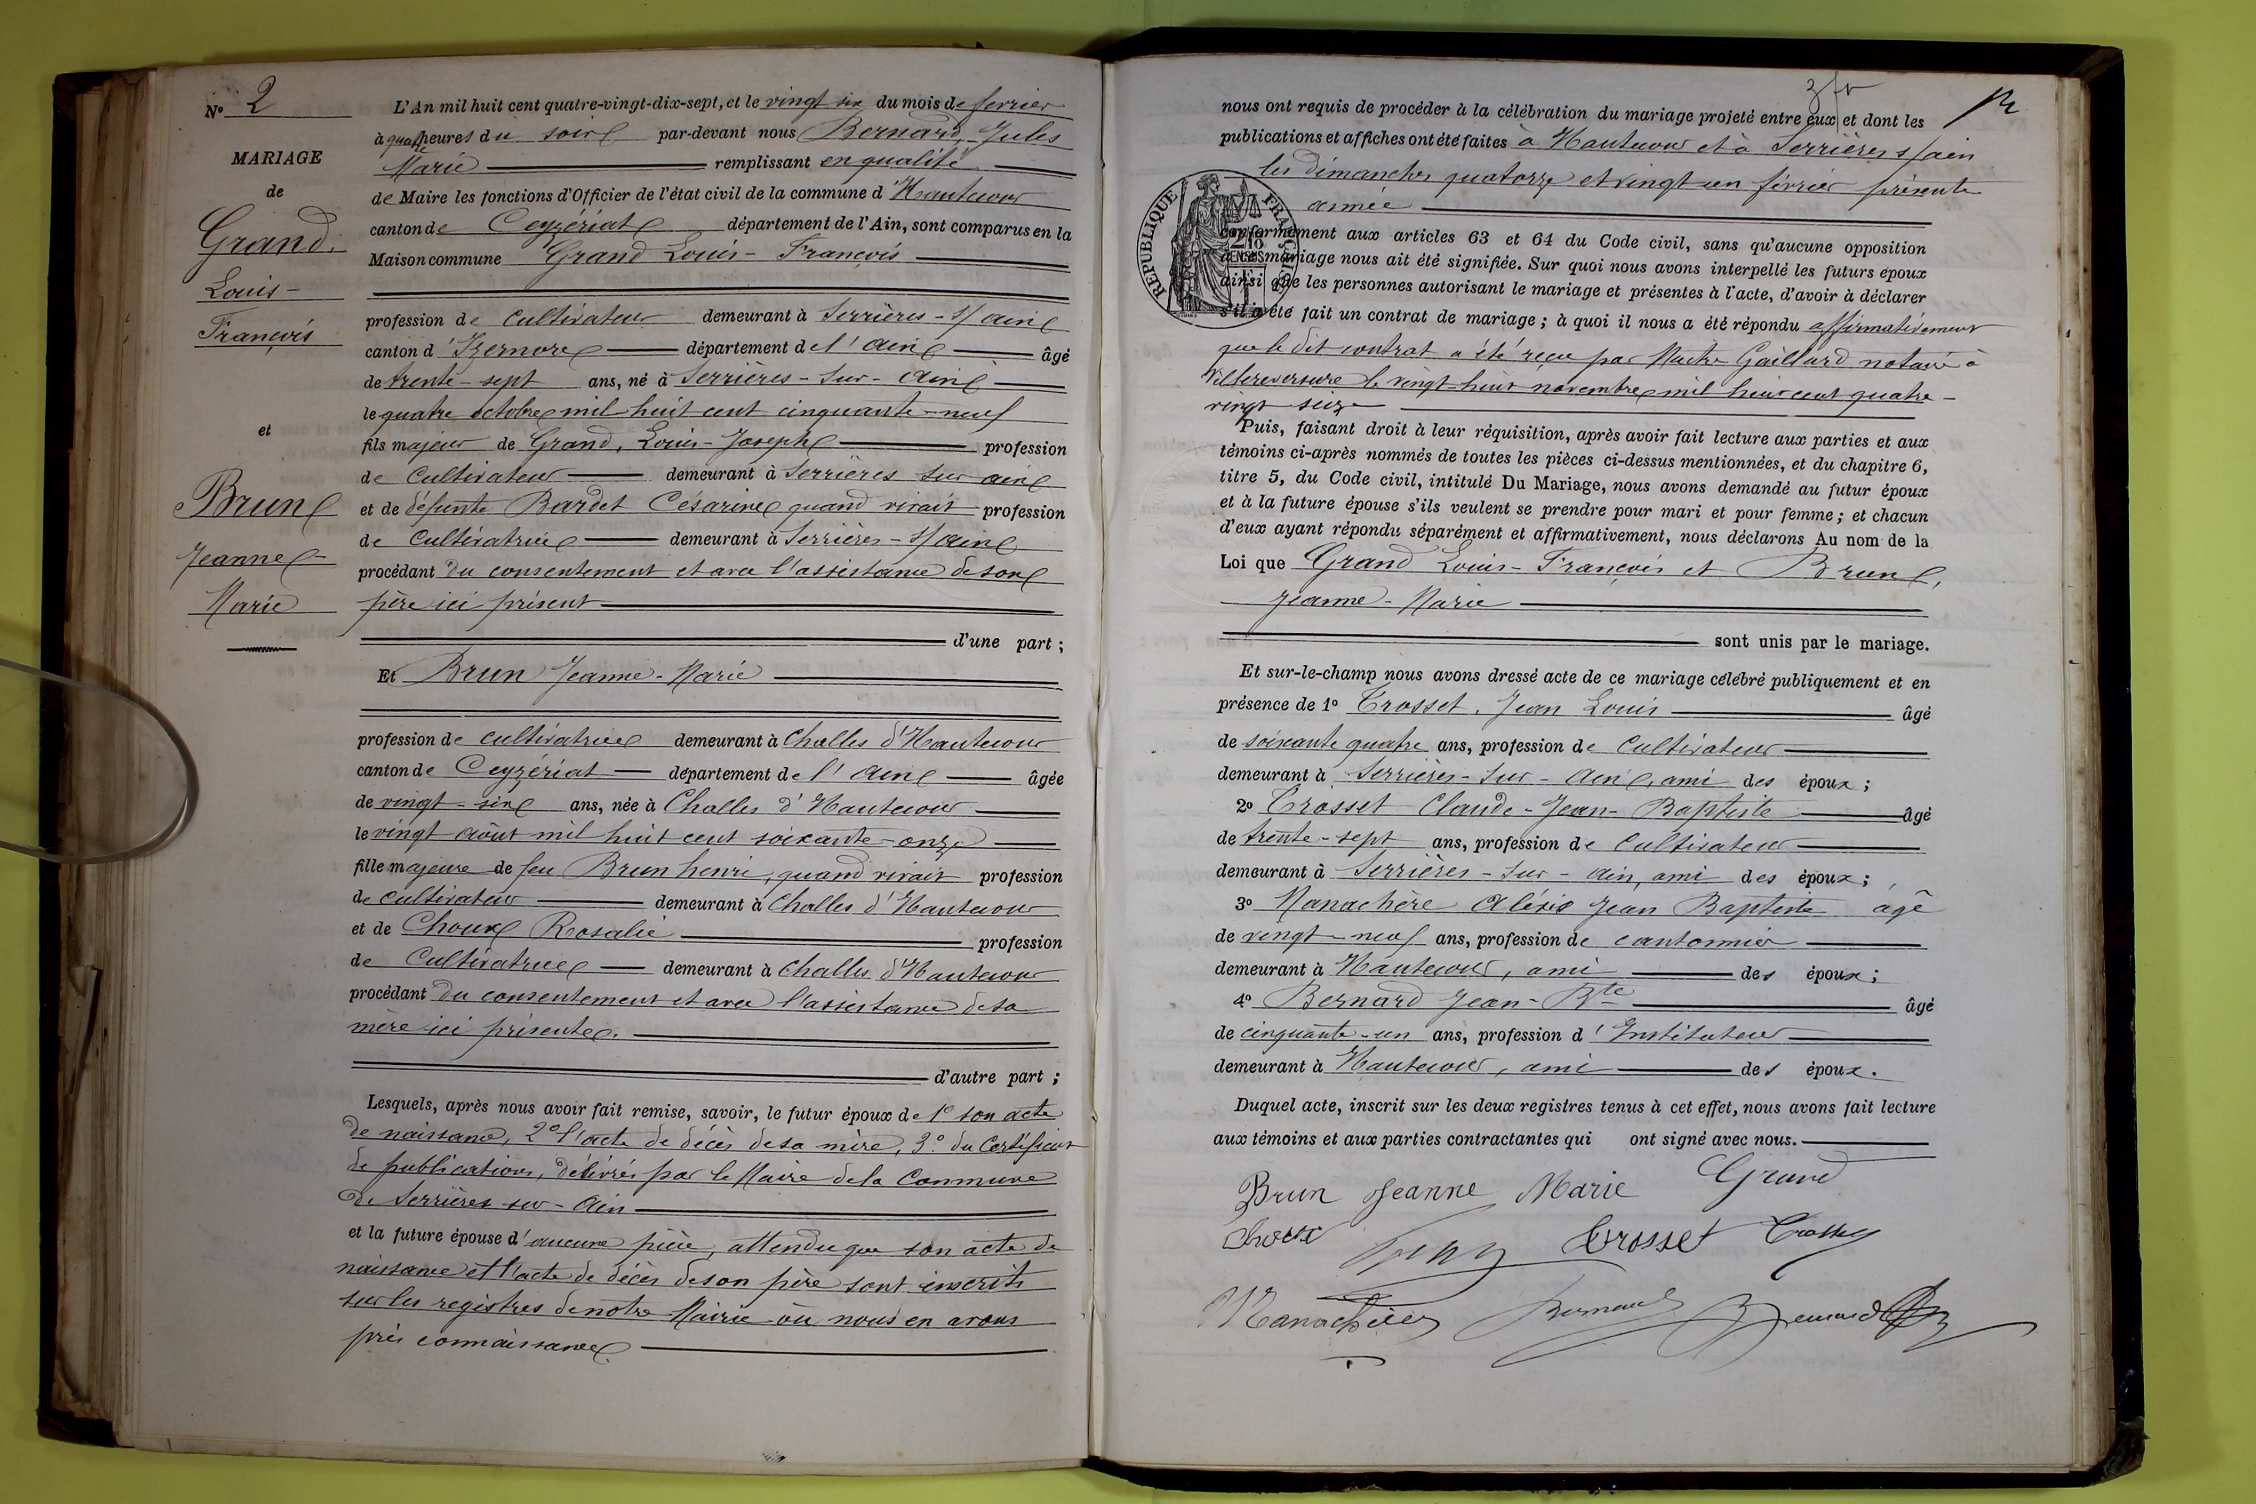 N° 2
MARIAGE
de
Grand
Louis-
François
et
Brun
Jeanne
Marie
L'An mil huit cent quatre-vingt-dix-sept, et le vingt six du mois de février
à quatre heures du soir par-devant nous Bernard, Jules
Marie remplissant en qualité
de Maire les fonctions d'Officier de l'état civil de la commune d'Hautecour
canton de Ceyzériat département de l'Ain, sont comparus en la
Maison commune Grand Louis-François
profession de cultivateur demeurant à Serrières-s/ain
canton d'Izernore département de l'ain âgé
de trente-sept ans, né à Serrières-sur-ain
le quatre octobre mil huit cent cinquante-neuf
fils majeur de Grand, Louis-Joseph profession
de cultivateur demeurant à Serrières sur ain
et de défunte Bardet Césarine quand vivait profession
de cultivatrice demeurant à Serrières-s/ain
procédant du consentement et avec l'assistance de son
père ici présent
d'une part;
Et Brun Jeanne-Marie
profession de cultivatrice demeurant à Challes d'Hautecour
canton de Ceyzériat département de l'ain âgée
de vingt-six ans, née à Challes d'Hautecour
le vingt août mil huit cent soixante-onze
fille majeure de feu Brun henri, quand vivait profession
de cultivateur demeurant à Challes d'Hautecour
et de Choux Rosalie profession
de Cultivatrice demeurant à Challes d'Hautecour
procédant du consentement et avec l'assistance de sa
mère ici présente.
d'autre part;
Lesquels, après nous avoir fait remise, savoir, le futur époux de 1° son acte
de naissance, 2° l'acte de décès de sa mère, 3° du Certificat
de publications, délivrés par le Maire de la Commune
de Serrières-sur-Ain
et la future épouse d'aucune pièce, attendu que son acte de
naissance et l'acte de décès de son père sont inscrits
sur les registres de notre Mairie où nous en avons
pris connaissance.
nous ont requis de procéder à la célébration du mariage projeté entre eux et dont les
publications et affiches ont été faites à Hautecour et à Serrières s/ain
les dimanches quatorze et vingt un février présente
année
REPUBLIQUE FRANÇAISE
conformément aux articles 63 et 64 du Code civil, sans qu'aucune opposition
à ce mariage nous ait été signifiée. Sur quoi nous avons interpellé les futurs époux
ainsi que les personnes autorisant le mariage et présentes à l'acte, d'avoir à déclarer
s'il a été fait un contrat de mariage; à quoi il nous a été répondu affirmativement
que le dit contrat a été reçu par Maître Gaillard notaire à
Villereversure le vingt-huit novembre mil huit cent quatre-
vingt seize
Puis, faisant droit à leur réquisition, après avoir fait lecture aux parties et aux
témoins ci-après nommés de toutes les pièces ci-dessus mentionnées, et du chapitre 6,
titre 5, du Code civil, intitulé Du Mariage, nous avons demandé au futur époux
et à la future épouse s'ils veulent se prendre pour mari et pour femme; et chacun
d'eux ayant répondu séparément et affirmativement, nous déclarons Au nom de la
Loi que Grand Louis-François et Brun,
Jeanne-Marie
sont unis par le mariage.
Et sur-le-champ nous avons dressé acte de ce mariage célébré publiquement et en
présence de 1° Crosset, Jean Louis âgé
de soixante quatre ans, profession de Cultivateur
demeurant à Serrières-sur-ain, ami des époux;
2° Crosset Claude-Jean-Baptiste âgé
de trente-sept ans, profession de Cultivateur
demeurant à Serrières-sur-ain, ami des époux;
3° Manachère Alexis Jean Baptiste âgé
de vingt-neuf ans, profession de cantonnier
demeurant à Hautecour, ami des époux;
4° Bernard Jean-Bte âgé
de cinquante-un ans, profession d'Instituteur
demeurant à Hautecour, ami des époux.
Duquel acte, inscrit sur les deux registres tenus à cet effet, nous avons fait lecture
aux témoins et aux parties contractantes qui ont signé avec nous.
Brun Jeanne Marie Grand
Choux Crosset Crosset
Manachère Bernard Bernard